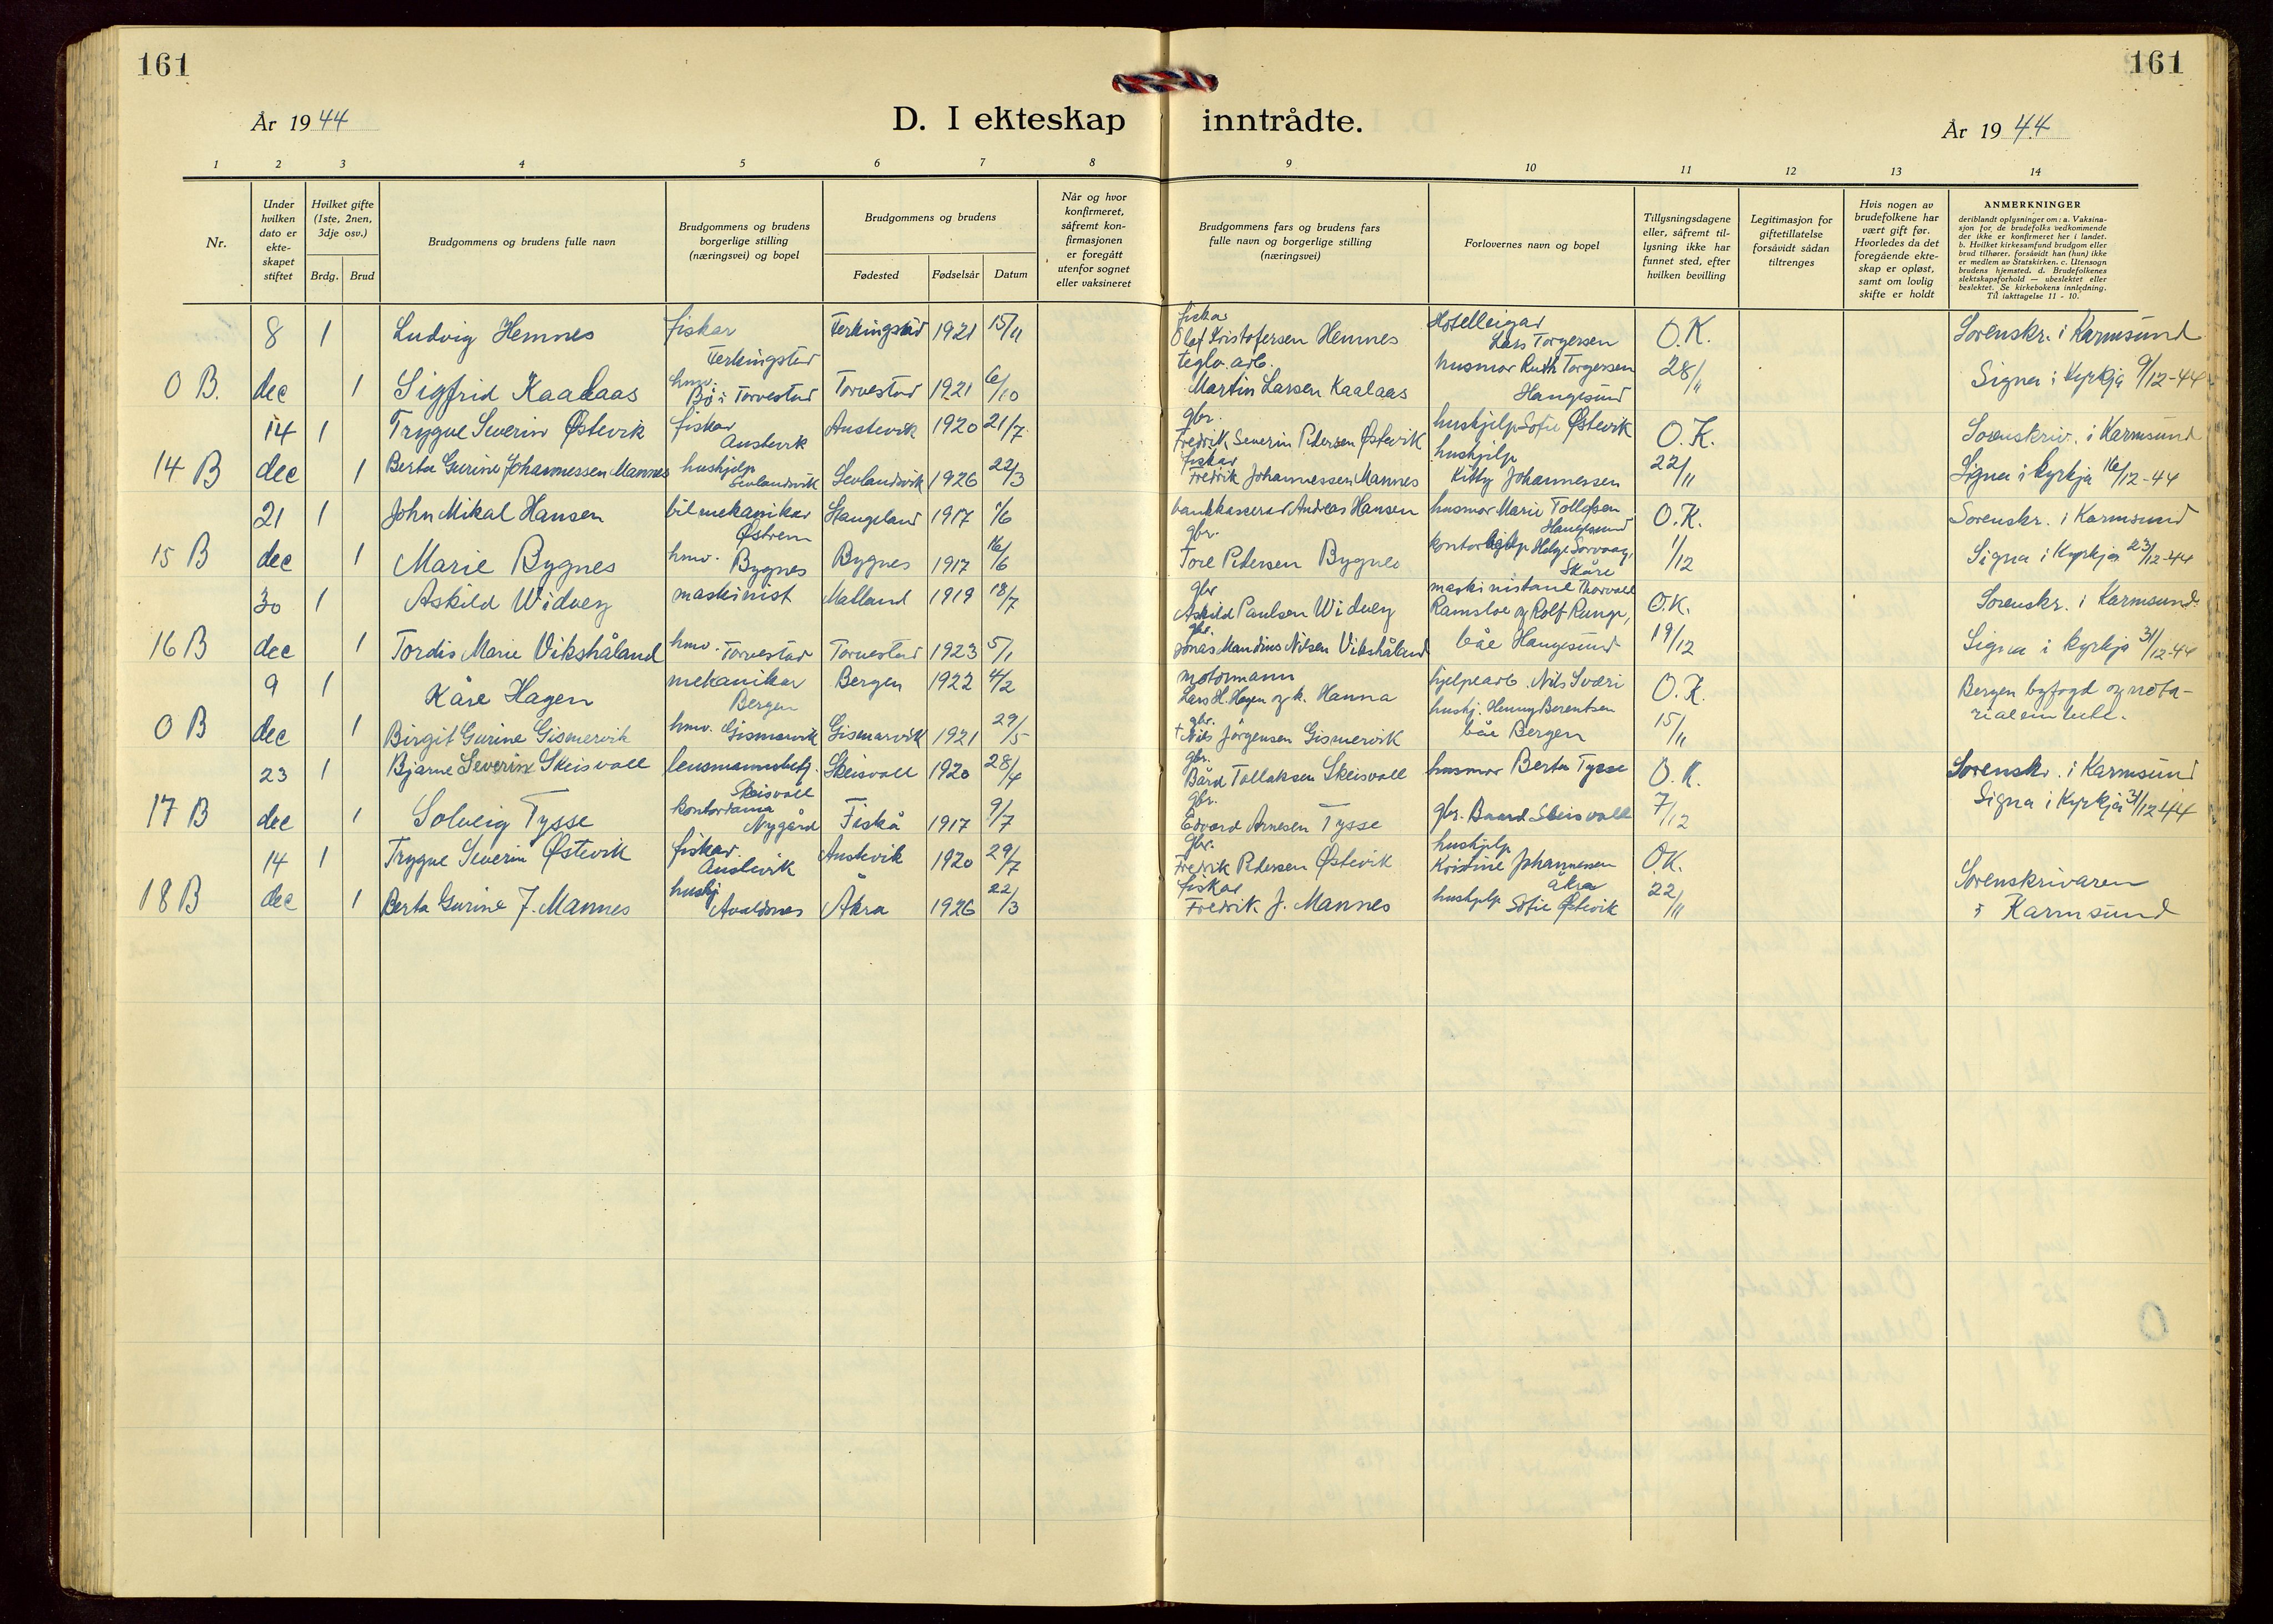 161
161
År 1944
D. I ekteskap inntrådte.
År 1944
1 2 3 4 5 6 7 8 9 10 11 12 13 14
Nr.
Under hvilken dato er ekte-skapet stiftet
Hvilket gifte (1ste, 2nen, 3dje osv.)
Brdg. Brud
Brudgommens og brudens fulle navn
Brudgommens og brudens borgerlige stilling (næringsvei) og bopel
Brudgommens og brudens
Fødested Fødselsår Datum
Når og hvor konfirmeret, såfremt kon-firmasjonen er foregått utenfor sognet eller vaksineret
Brudgommens fars og brudens fars fulle navn og borgerlige stilling (næringsvei)
Forlovernes navn og bopel
Tillysningsdagene eller, såfremt til-lysning ikke har funnet sted, efter hvilken bevilling
Legitimasjon for giftetillatelse forsåvidt sådan tiltrenges
Hvis nogen av brudefolkene har vært gift før. Hvorledes da det foregående ekte-skap er opløst, samt om lovlig skifte er holdt
ANMERKNINGER
deriblandt oplysninger om: a. Vaksina-
sjon for de brudefolks vedkommende
der ikke er konfirmeret her i landet.
b. Hvilket kirkesamfund brudgom eller
brud tilhører, forsåvidt han (hun) ikke
er medlem av Statskirken. c. Utensogn
brudens hjemsted. d. Brudefolkenes
slektskapsforhold — ubeslektet eller
beslektet. Se kirkebokens innledning.
Til iakttagelse 11 - 10.
8 1 Ludvig Hemnes fiskar Ferkingstad Ferkingstad 1921 15/11 fiskar Olaf Kristofersen Hemnes Hotelleigar Lars Torgersen O.K. Sorenskr. i Karmsund
0 B. dec 1 Sigfrid Kaalaas hmv. Bø i Torvestad Torvestad 1921 6/10 teglv. arb. Martin Larsen Kaalaas husmor Ruth Torgersen Haugesund 28/11 Signa i Kyrkja 9/12-44
14 1 Trygve Severin Østevik fiskar Austevik Austevik 1920 21/7 gbr. Fredrik Severin Pedersen Østevik hushjelp Sofie Østevik O.K. Sorenskriv. i Karmsund
14 B dec 1 Berta Gurine Johannessen Mannes hushjelp Sevlandsvik Sevlandsvik 1926 22/3 fiskar Fredrik Johannessen Mannes hushjelp Kitty Johannessen 22/11 Signa i kyrkja 16/12-44
21 1 John Mikal Hansen bilmekanikar Østrem Stangeland 1917 1/6 bankkasserar Andreas Hansen husmor Marie Tollefsen Haugesund O.K. Sorenskr. i Karmsund
15 B dec 1 Marie Bygnes hmv. Bygnes Bygnes 1917 16/6 gbr. Tore Pedersen Bygnes kontorhjelp Helge Sorvaag, Skåre 1/12 Signa i Kyrkja 23/12-44
30 1 Askild Widvey maskinist Matland 1919 18/7 gbr Askild Paulsen Widvey maskinistane Thorvald Ramsloe og Rolf Runge, O.K. Sorenskr. i Karmsund
16 B dec 1 Tordis Marie Vikshåland hmv. Torvestad Torvestad 1923 5/1 gbr. Jonas Mandius Nilsen Vikshåland båe Haugesund 19/12 Signa i kyrkja 31/12-44
9 1 Kåre Hagen mekanikar Bergen Bergen 1922 4/2 motormann Lars H. Hagen og k. Hanna hjelpearb. Nils Sværi O.K. Bergen byfogd og nota-
0 B dec 1 Birgit Gurine Gismervik hmv. Gismarvik Gismarvik 1921 29/5 gbr. † Nils Jørgensen Gismervik hushj. Henny Berentsen båe Bergen 15/11
23 1 Bjarne Severin Skeisvoll lensmannsbetj. Skeisvoll Skeisvoll 1920 28/4 gbr. Bård Tollaksen Skeisvoll husmor Berta Tysse O.K. Sorenskr. i Karmsund
17 B dec 1 Solveig Tysse kontordama Nygård Fiskå 1917 9/7 gbr. Edvard Arnesen Tysse gbr. Baard Skeisvoll 7/12 Signa i Kyrkja 31/12 44
14 1 Trygve Severin Østevik fiskar Austevik Austevik 1920 29/7 gbr. Fredrik Pedersen Østevik hushjelp Kristine Johannessen Åkra O.K. Sorenskrivaren
18 B dec 1 Berta Gurine J. Mannes hushj Avaldsnes Åkra 1926 22/3 fiskar Fredrik J. Mannes hushjelp Sofie Østevik 22/11 i Karmsund